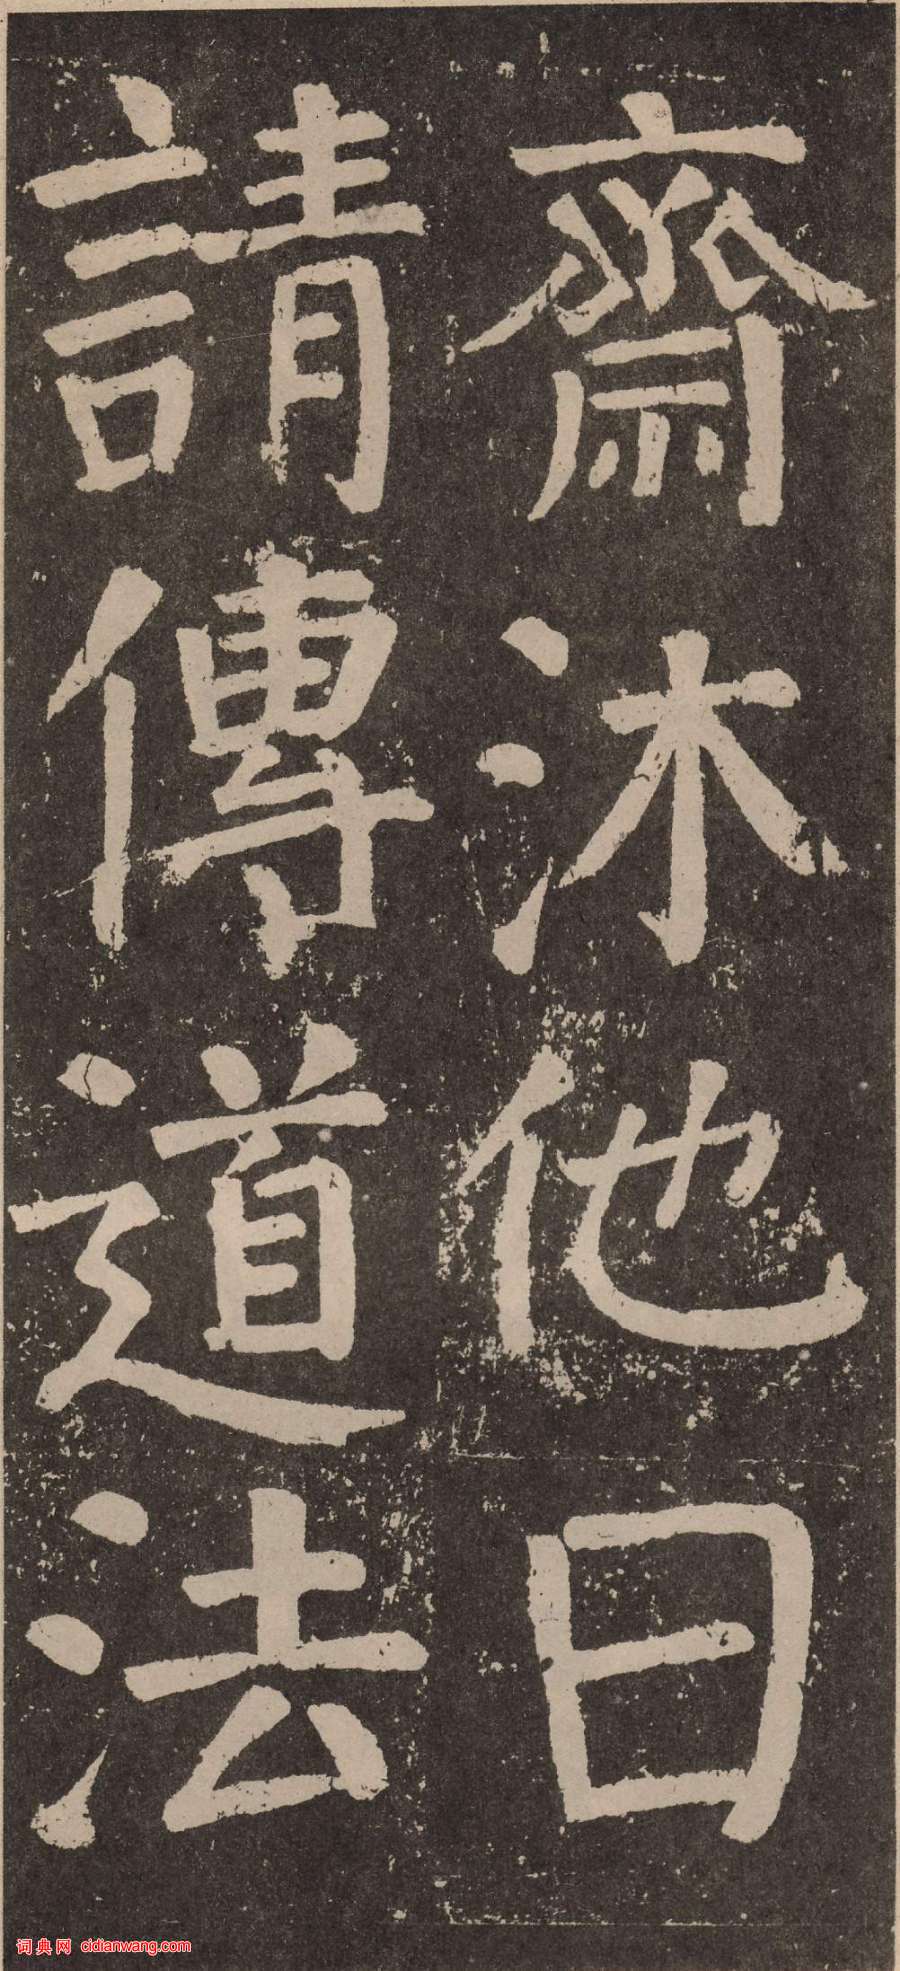 齋沐他日
請傳道法
词典网 cidianwang.com